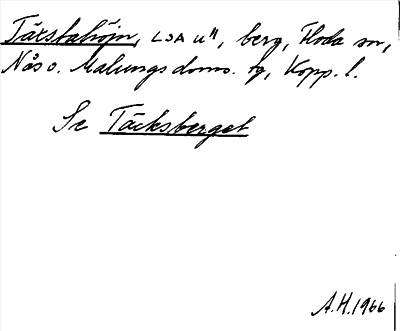 Täxstahöjn, LSA U", berg, Floda sn,
Nås o. Malungs doms. hg, Kopp. l.
Se Täcksberget
A.H. 1966